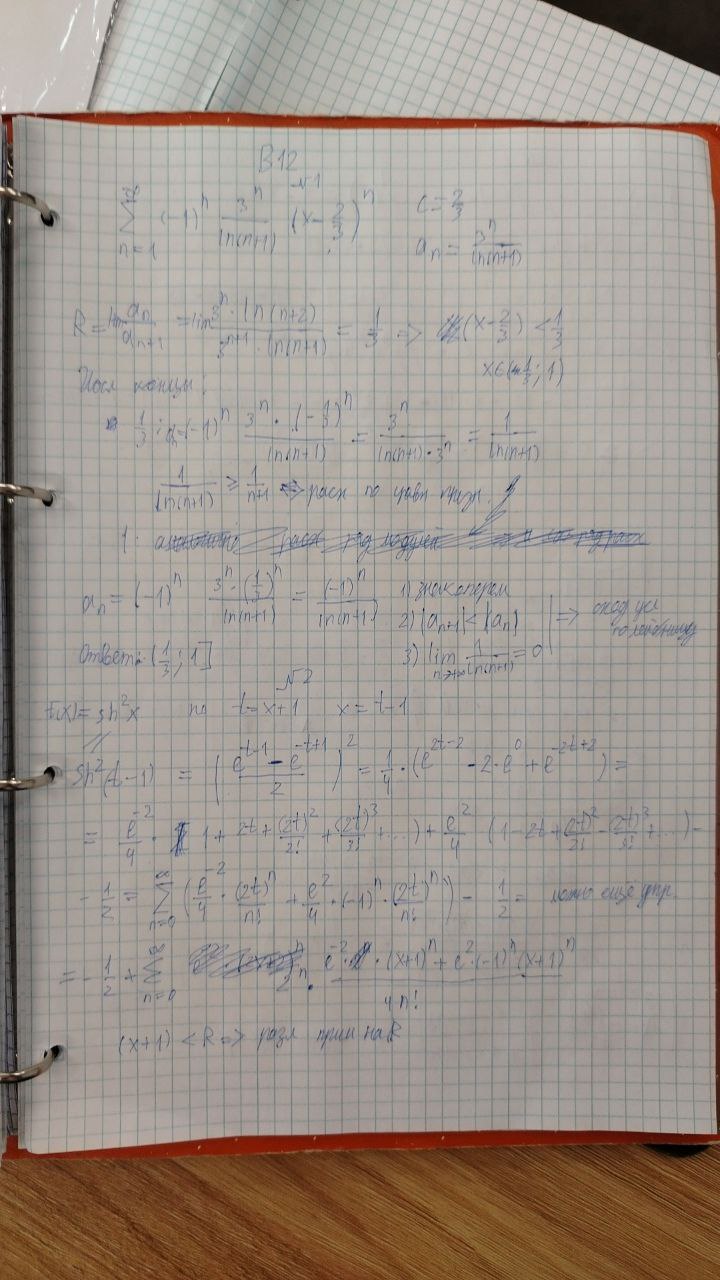 В12
№1
∑_{n=1}^{∞} (-1)^n 3^n/ln(n+1) (x-2/3)^n   c=2/3
a_n = 3^n/ln(n+1)
R = lim a_n/a_{n+1} = lim 3^n·ln(n+2)/3^{n+1}·ln(n+1) = 1/3 => (x-2/3) < 1/3
x∈(1/3; 1)
концы:
1/3: (-1)^n 3^n·(-1/3)^n/ln(n+1) = 3^n/ln(n+1)·3^n = 1/ln(n+1)
1/ln(n+1) ≥ 1/n+1 => расх по сравн призн.
1.
a_n = (-1)^n 3^n·(1/3)^n/ln(n+1) = (-1)^n/ln(n+1)
1) знакоперем
2) |a_{n+1}| < |a_n|
3) lim_{n→+∞} 1/ln(n+1) = 0
=> сход усл по лейбницу
Ответ: (1/3; 1]
№2
f(x) = sh²x   по   t=x+1   x=t-1
sh²(t-1) = (e^{t-1} - e^{-t+1}/2)² = 1/4·(e^{2t-2} - 2·e^0 + e^{-2t+2}) =
= e^{-2}/4 · 1+2t+(2t)²/2!+(2t)³/3!+...) + e²/4 (1-2t+(2t)²/2!-(2t)³/3!+...) -
- 1/2 = ∑_{n=0}^{∞} (e^{-2}/4·(2t)^n/n! + e²/4·(-1)^n·(2t)^n/n!) - 1/2 = можно ещё упр.
= -1/2 + ∑_{n=0}^{∞} 2^n · e^{-2}·(x+1)^n + e²·(-1)^n(x+1)^n/4n!
(x+1) < R => разл прим на R